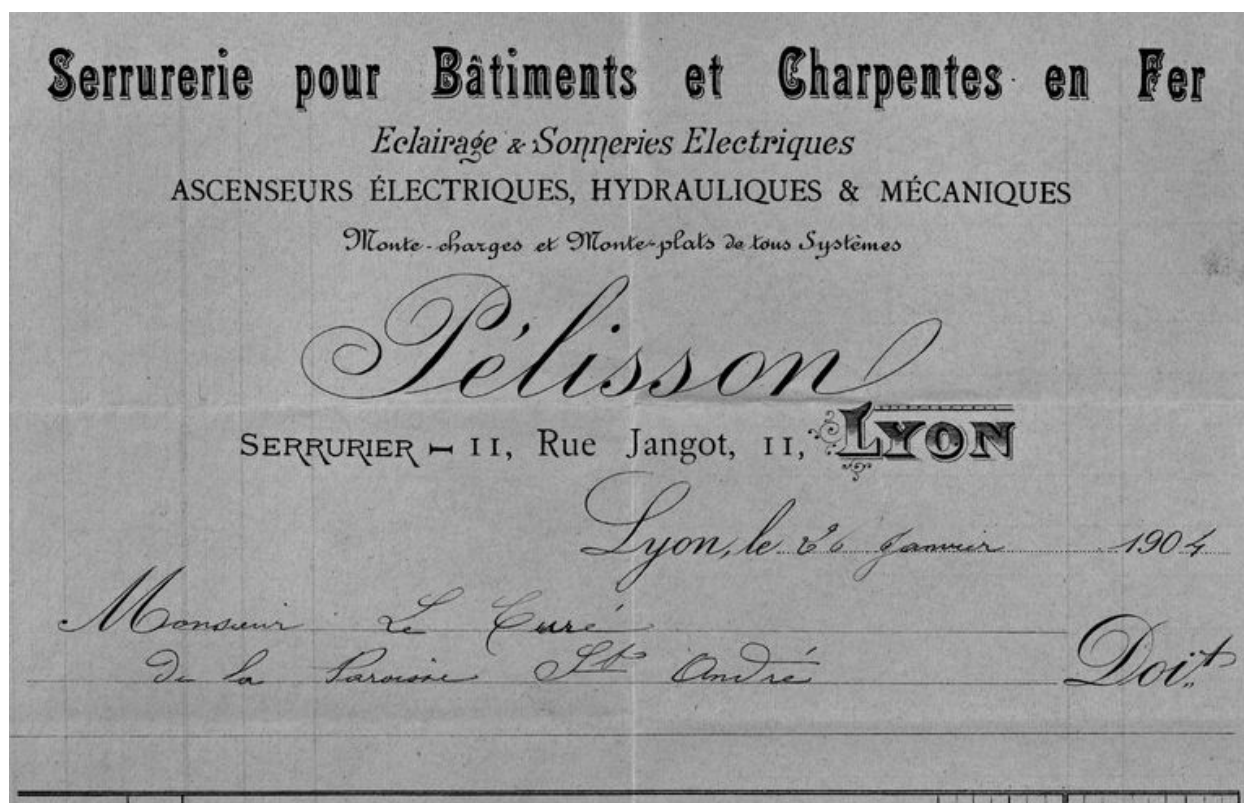 Serrurerie pour Bâtiments et Charpentes en Fer
Eclairage & Sonneries Electriques
ASCENSEURS ÉLECTRIQUES, HYDRAULIQUES & MÉCANIQUES
Monte-charges et Monte-plats de tous Systèmes
Pélisson
SERRURIER — 11, Rue Jangot, 11, LYON
Lyon, le 26 Janvier 1904
Monsieur Le Curé
de la Paroisse St André Doit